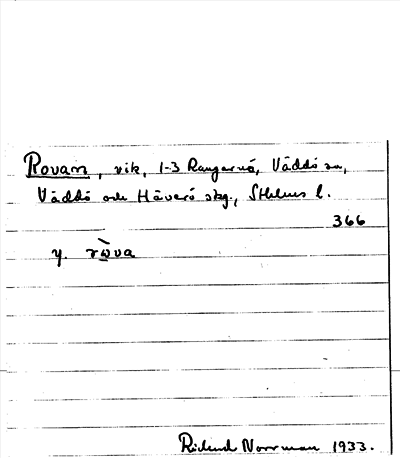 Rovan, vik, 1-3 Rangarnö, Väddö sn,
Väddö och Häverö skg., Sthlms l.
366
y. ròva
Rickard Norrman 1933.